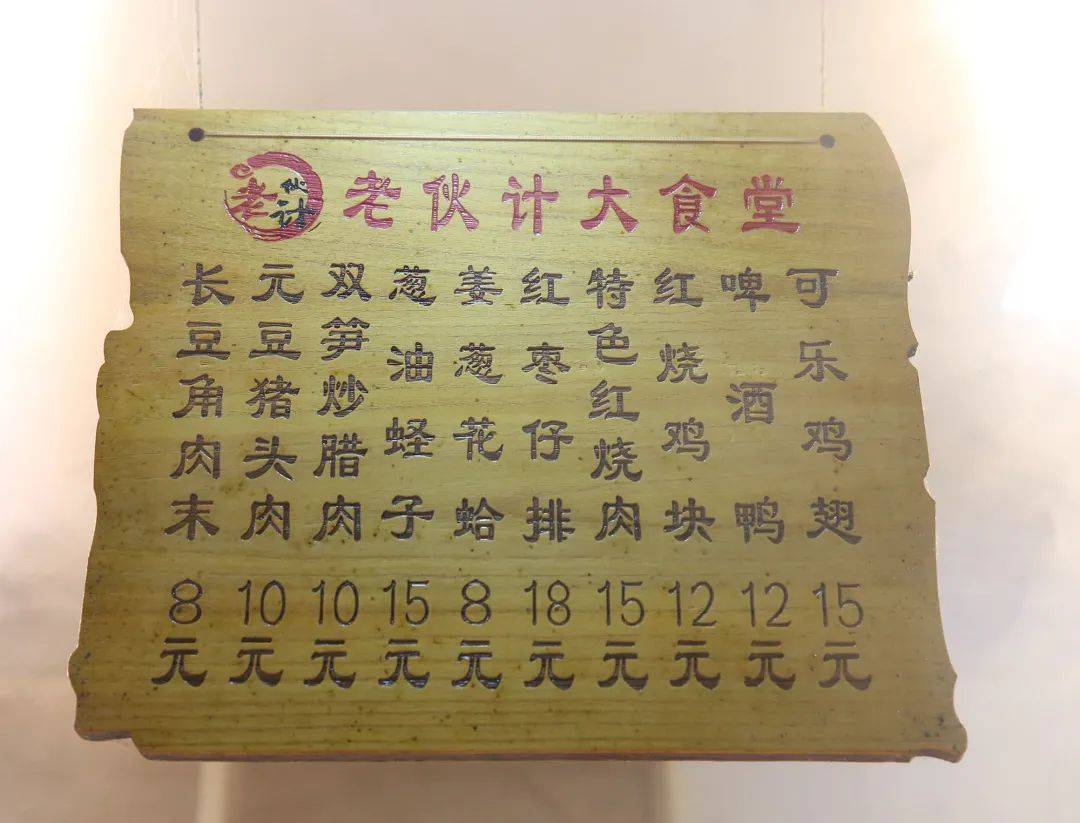 老伙计
老伙计大食堂
长豆角肉末8元
元豆猪头肉10元
双笋炒腊肉10元
葱油蛏子15元
姜葱花蛤8元
红枣仔排18元
特色红烧肉15元
红烧鸡块12元
啤酒鸭12元
可乐鸡翅15元